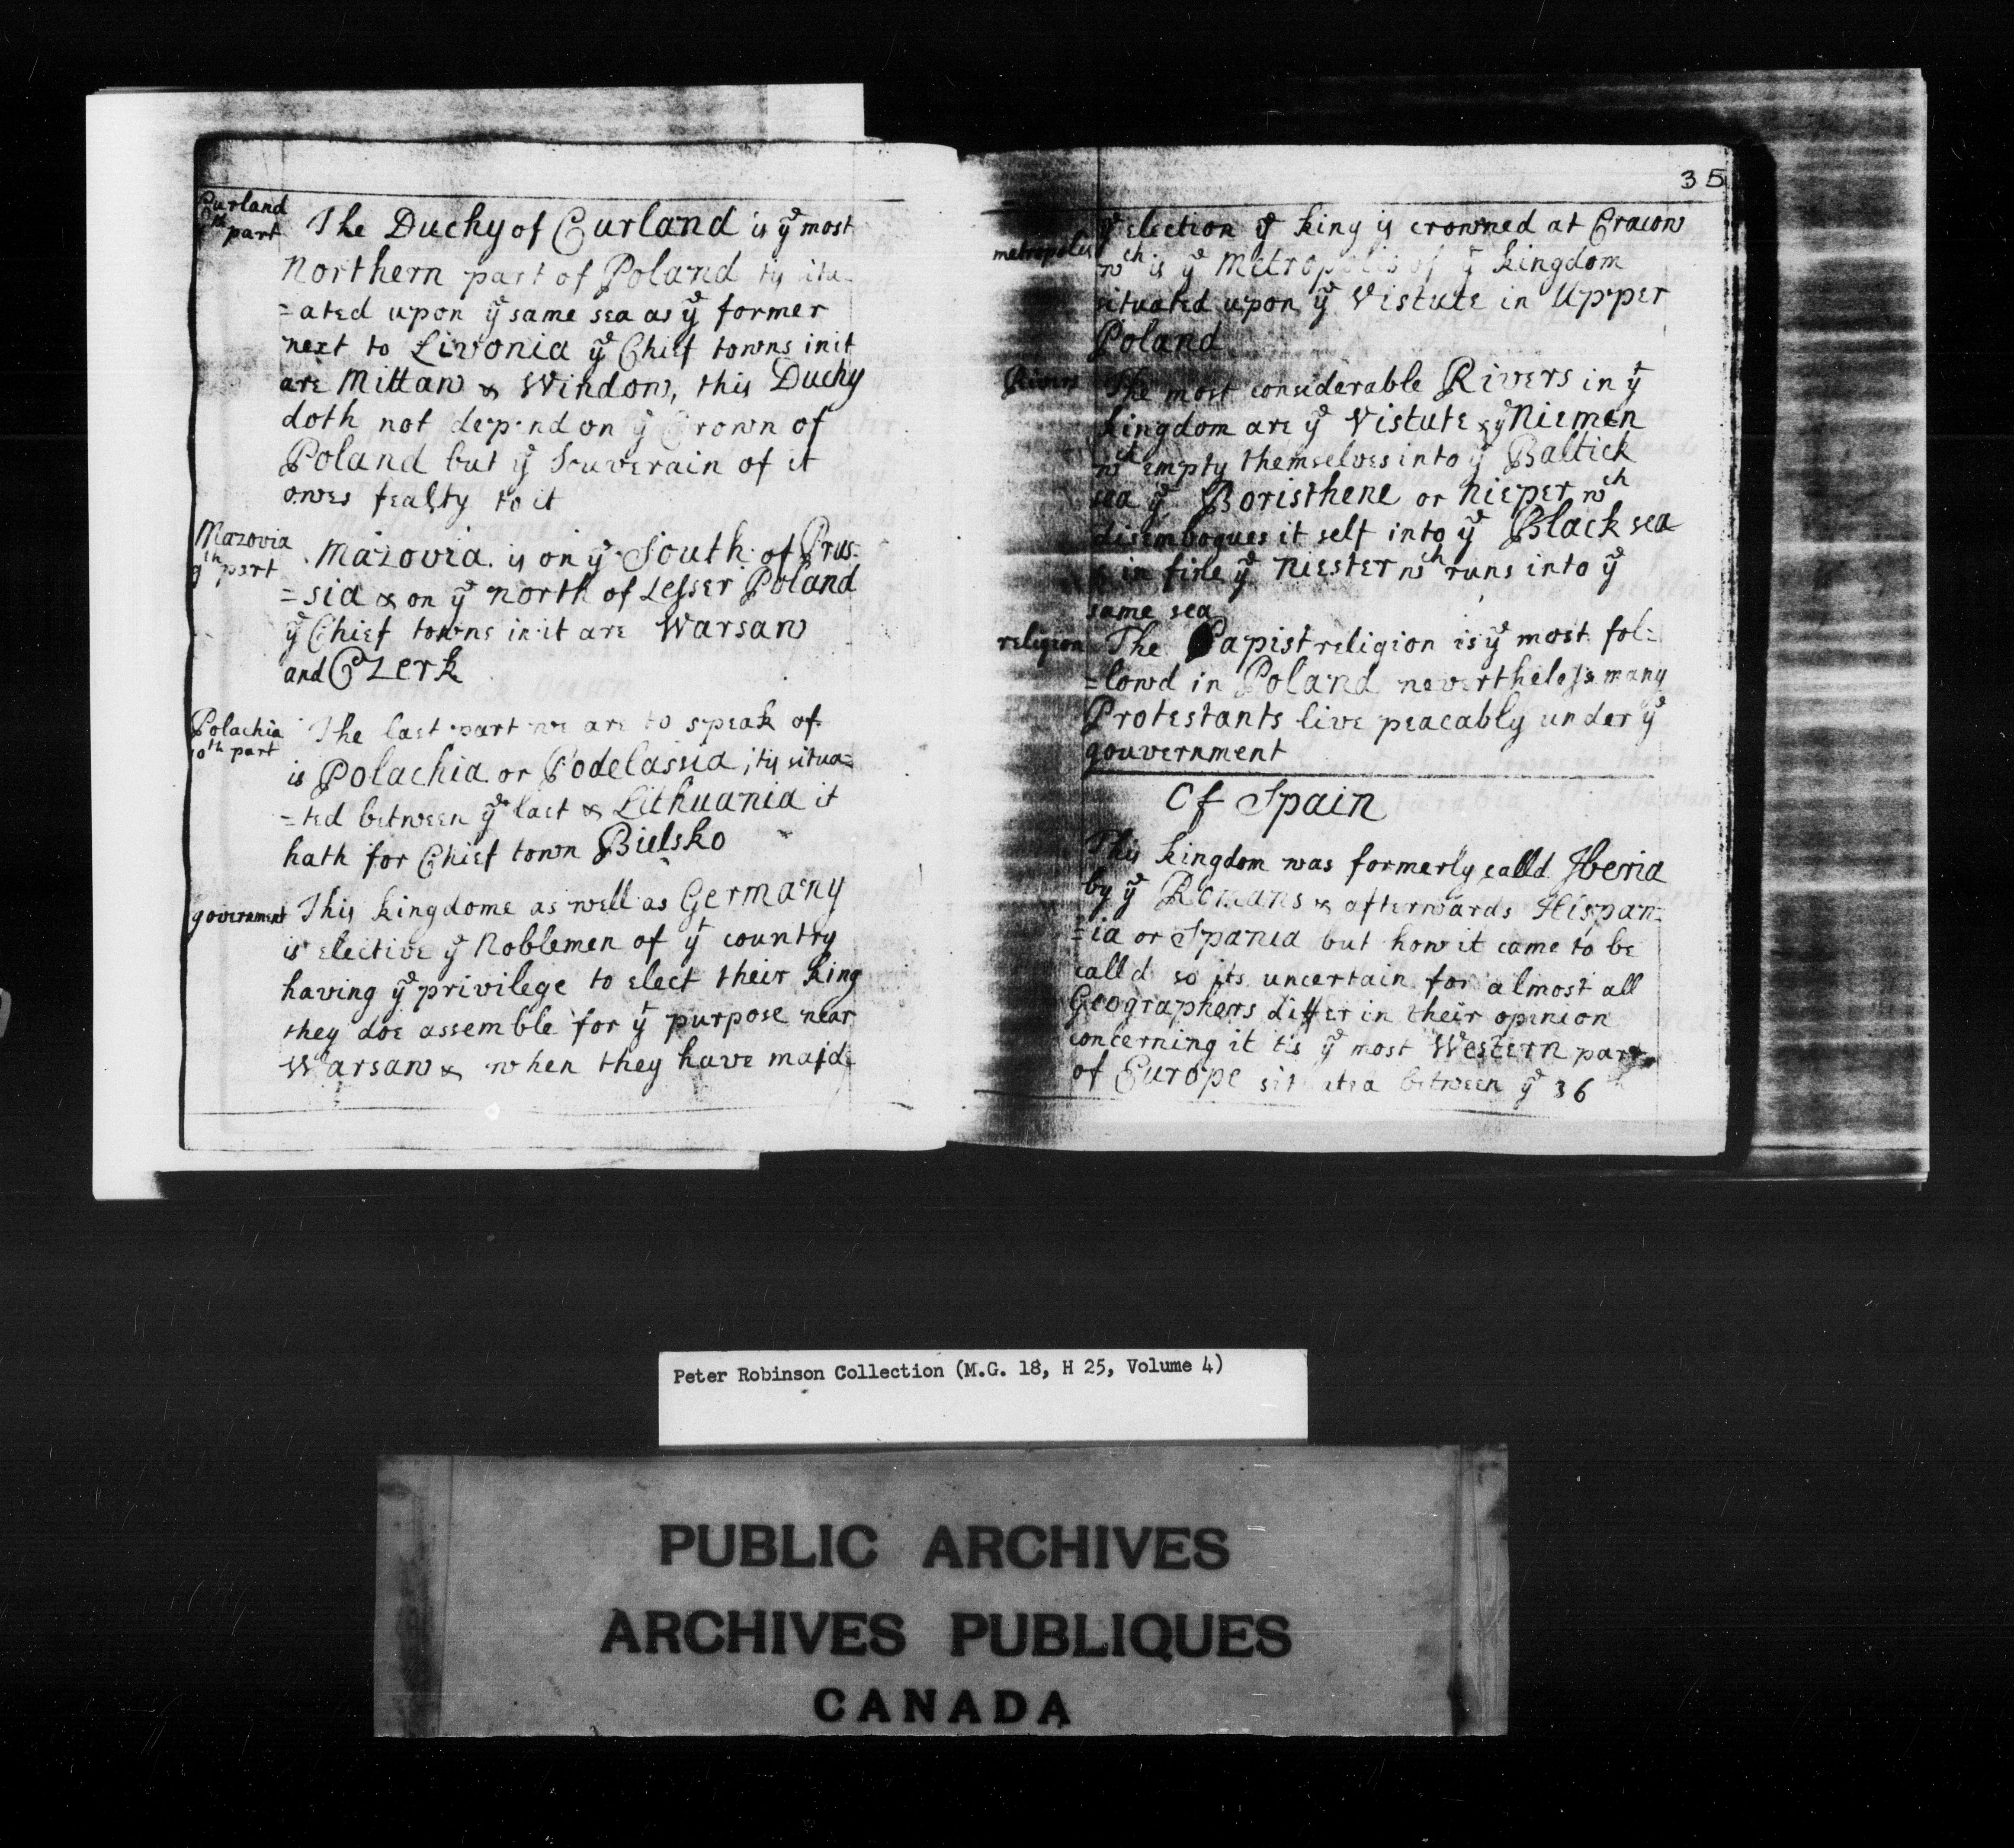 Curland
8th part
The Duchy of Curland is ye most
Northern part of Poland tis situ
=ated upon ye same sea as ye former
next to Livonia ye Chief towns in it
are Mittaw & Window, this Duchy
doth not depend on ye Crown of
Poland but ye Souverain of it
owes fealty to it
Mazovia
9th part
Mazovia is on ye South of Prus-
=sia & on ye north of Lesser Poland
ye Chief towns in it are Warsaw
and Czerk
Polachia
10th part
The last part we are to speak of
is Polachia or Podelassia; tis situa=
=ted between ye last & Lithuania it
hath for Chief town Bielsko
government
This kingdome as well as Germany
is elective ye Noblemen of yt country
having ye privilege to elect their king
they doe assemble for yt purpose near
Warsaw & when they have maide
35
ye election ye king is crowned at Cracow
metropolis
wch is ye Metropolis of ye kingdom
situated upon ye Vistute in Upper
Poland
Rivers
The most considerable Rivers in yt
kingdom are ye Vistute & ye Niemen
wch empty themselves into ye Baltick
sea ye Boristhene or Nieper wch
disembogues it self into ye Black sea
& in fine ye Niester wch runs into ye
same sea
religion
The Papist religion is ye most fol=
=lowd in Poland nevertheless many
Protestants live peacably under yt
gouvernment
Of Spain
This kingdom was formerly calld Iberia
by ye Romans & afterwards Hispan=
=ia or Spania but how it came to be
calld so its uncertain for almost all
Geographers differ in their opinion
concerning it tis ye most Western part
of Europe situated between ye 36
Peter Robinson Collection (M.G. 18, H 25, Volume 4)
PUBLIC ARCHIVES
ARCHIVES PUBLIQUES
CANADA